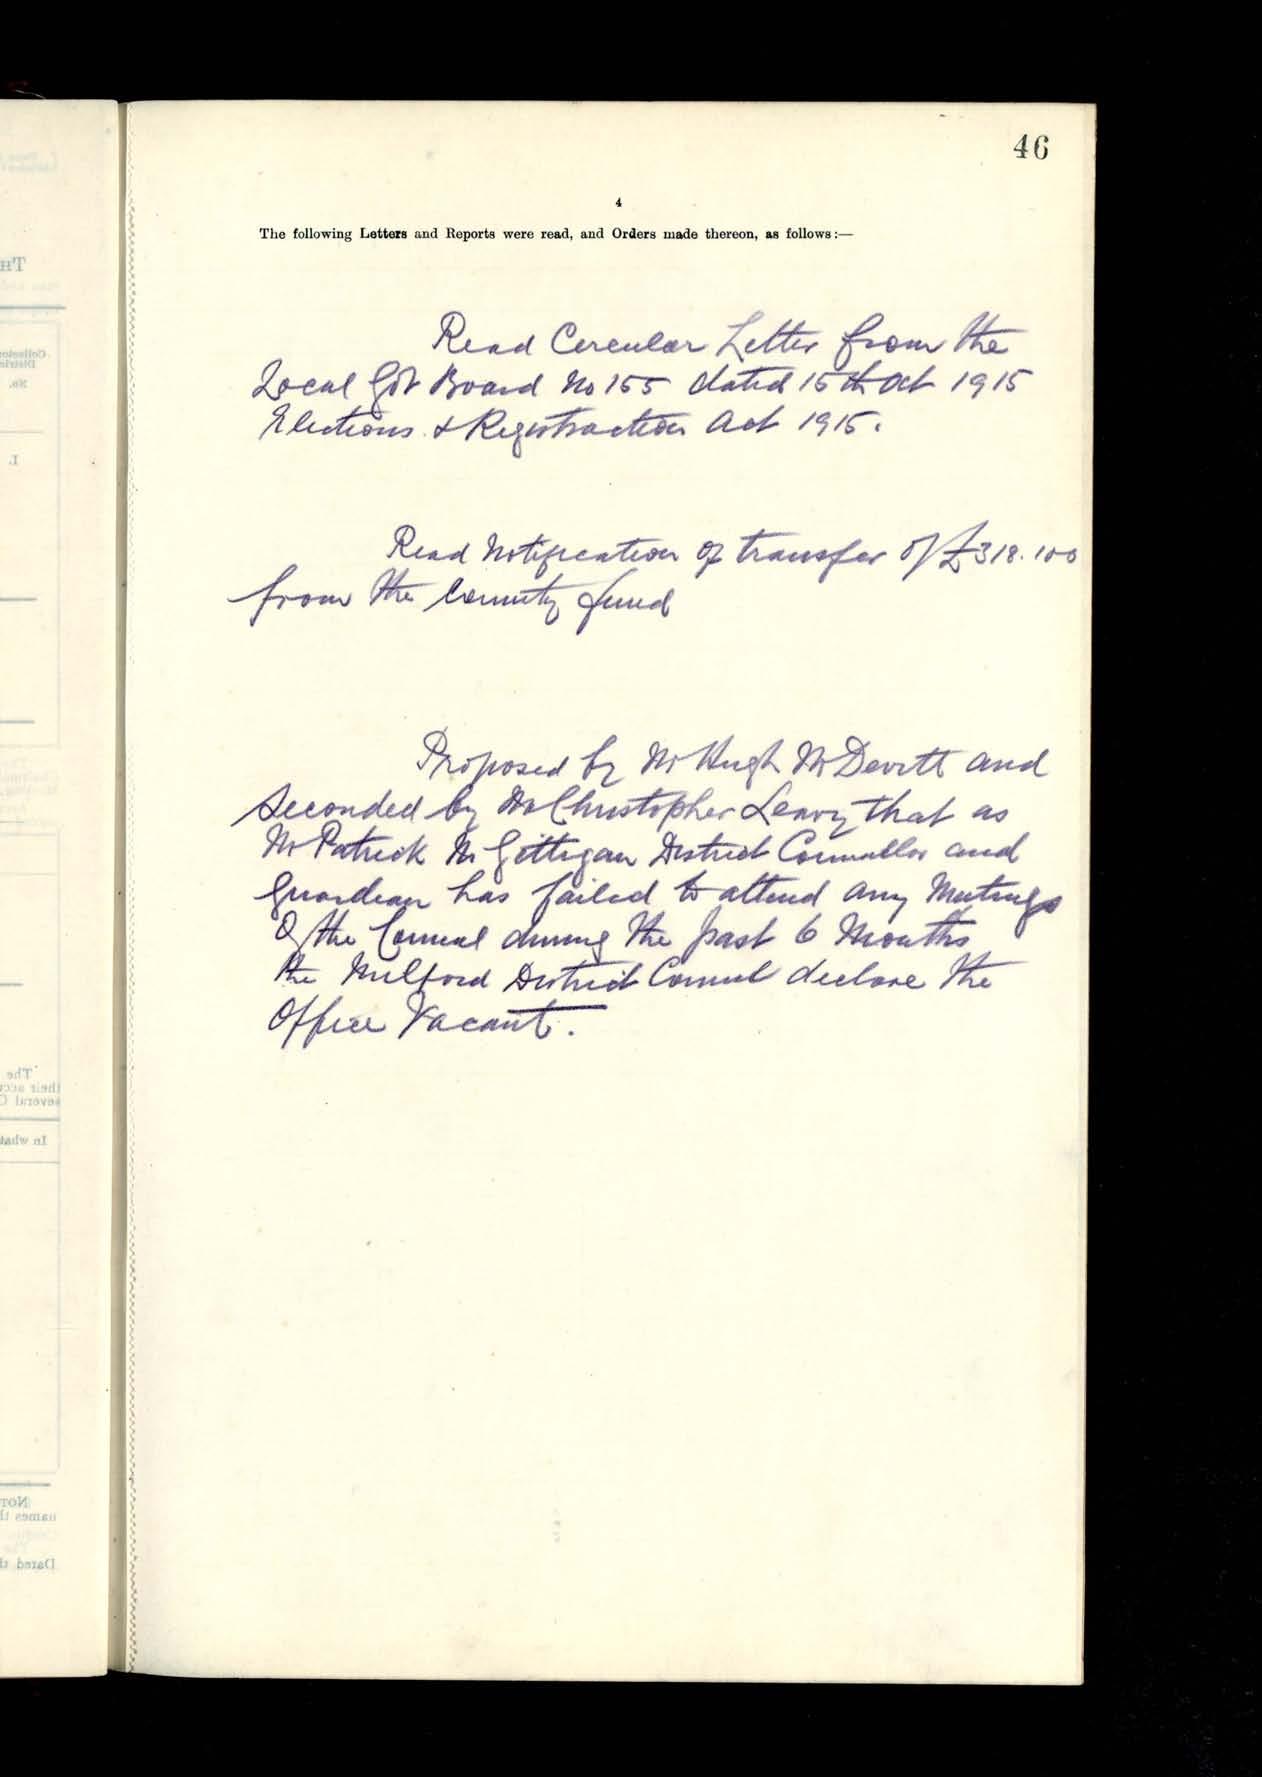 46
4
The following Letters and Reports were read, and Orders made thereon, as follows:—
Read Circular Letter from the
Local Govt Board No 155 dated 15th Oct 1915
Elections & Registration Act 1915.
Read Notification of transfer of £318.10.0
from the County fund
Proposed by Mr Hugh McDevitt and
Seconded by Mr Christopher Leavy that as
Mr Patrick McGettigan District Councillor and
Guardian has failed to attend any Meetings
of the Council during the past 6 Months
the Milford District Council declare the
Office Vacant.